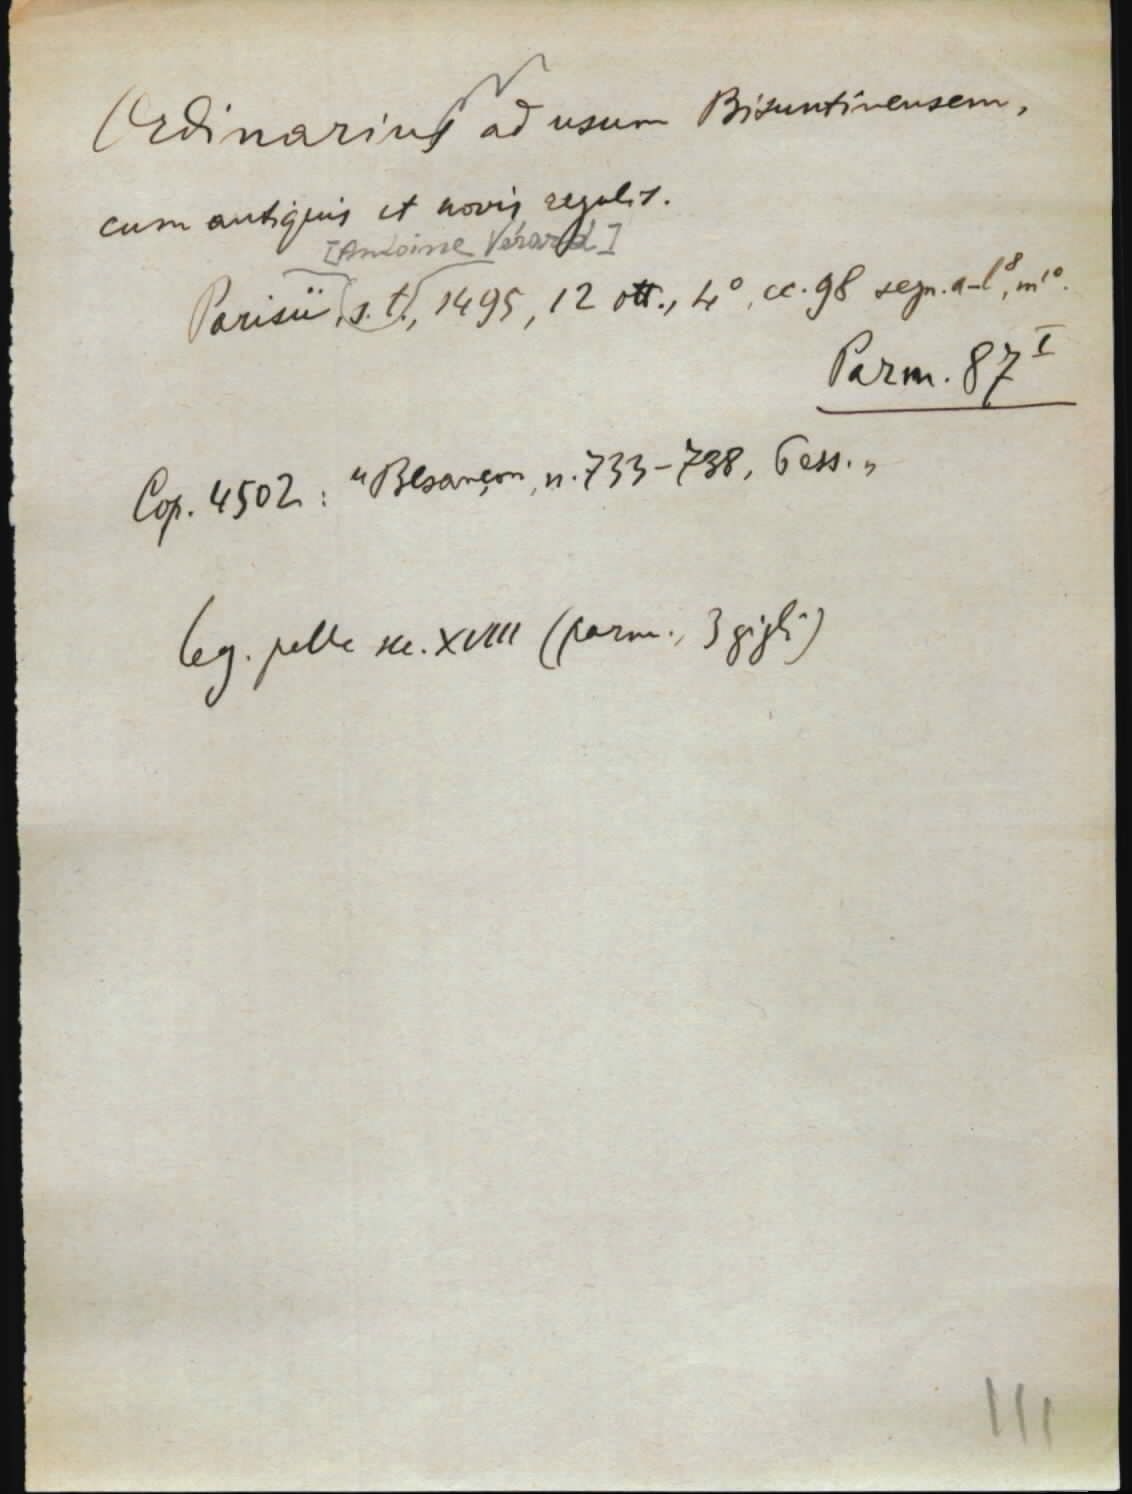 Ordinarius ad usum Bisuntinensem,
cum antiquis et novis regulis.
[Antoine Vérard]
Parisii, s. t., 1495, 12 ott., 4°, cc. 98 segn. a-l⁸, m¹⁰.
Parm. 87ᴵ
Cop. 4502: "Besançon, n. 733-738, 6 ess."
Leg. pelle sec. XVIII (parm., 3 gigli)